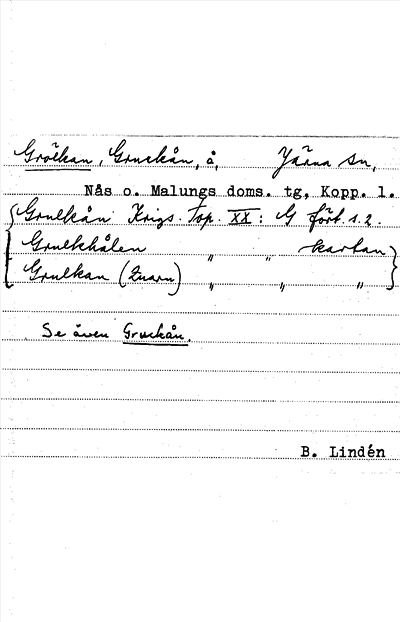 Gröekan, Gruckån, å, Järna sn,
Nås o. Malungs doms. tg, Kopp. l.
Gruckån Krigs. Top. XX: G fört. s. 2.
Gruckhålen " " kartan
Gruckan (Kvarn) " " "
Se även Gruckån.
B. Lindén